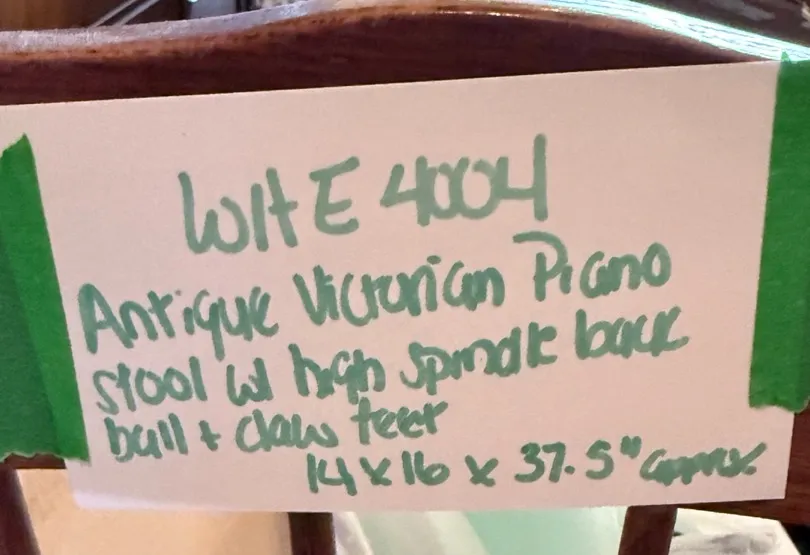 WHE 4004
Antique Victorian Piano
stool w/ high spindle back
ball + claw feet
14 x 16 x 37.5" approx.